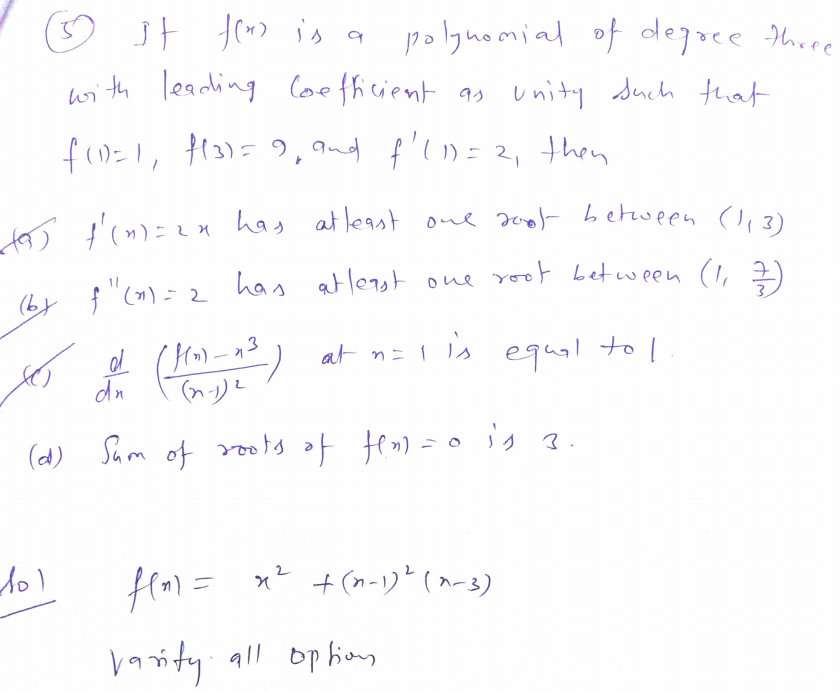 (5) If f(x) is a polynomial of degree three
with leading coefficient as unity such that
f(1)=1, f(3)=9, and f'(1)=2, then
(a) f'(x)=2x has atleast one root between (1,3)
(b) f''(x)=2 has atleast one root between (1, 7/3)
(c) d/dx ((f(x)-x^3)/(x-1)^2) at x=1 is equal to 1.
(d) Sum of roots of f(x)=0 is 3.
Sol f(x) = x^2 +(x-1)^2(x-3)
Varify all option